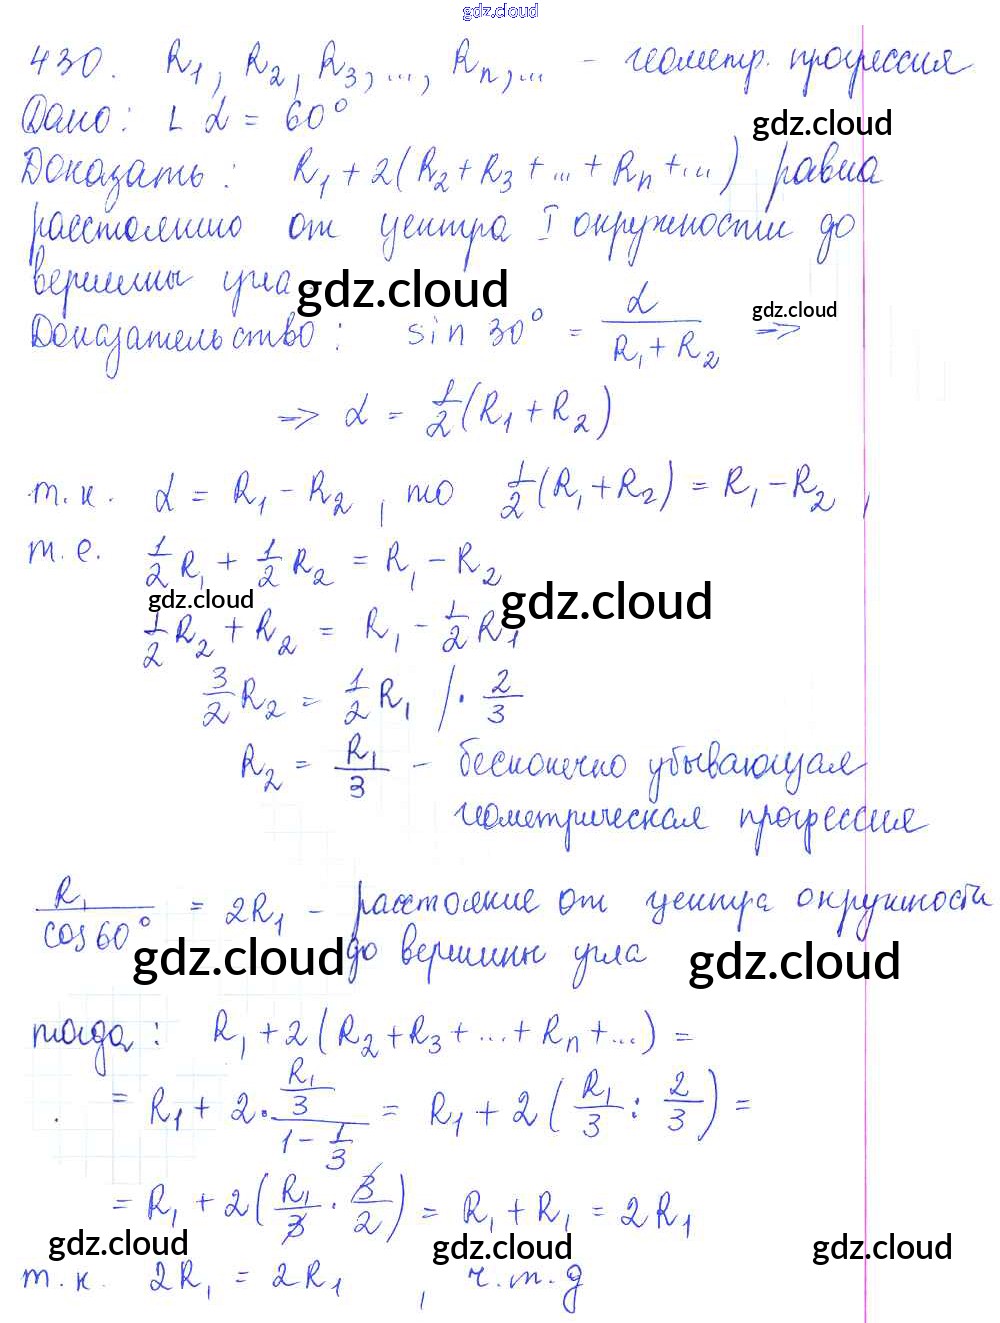 gdz.cloud
430. R₁, R₂, R₃, ..., Rₙ, ... - геометр. прогрессия
gdz.cloud
Дано: ∟ α = 60°
Доказать: R₁ + 2(R₂ + R₃ + ... + Rₙ + ...) равна
расстоянию от центра I окружности до
вершины угла
gdz.cloud
gdz.cloud
Доказательство: sin 30° = α/(R₁ + R₂) =>
=> α = 1/2 (R₁ + R₂)
т.к. α = R₁ - R₂, то 1/2 (R₁ + R₂) = R₁ - R₂,
т.е. 1/2 R₁ + 1/2 R₂ = R₁ - R₂
gdz.cloud
gdz.cloud
1/2 R₂ + R₂ = R₁ - 1/2 R₁
3/2 R₂ = 1/2 R₁ / · 2/3
R₂ = R₁/3 - бесконечно убывающая
геометрическая прогрессия
R₁/cos 60° = 2R₁ - расстояние от центра окружности
до вершины угла
gdz.cloud
gdz.cloud
тогда: R₁ + 2(R₂ + R₃ + ... + Rₙ + ...) =
= R₁ + 2 · (R₁/3)/(1 - 1/3) = R₁ + 2(R₁/3 : 2/3) =
= R₁ + 2(R₁/3 · 3/2) = R₁ + R₁ = 2R₁
gdz.cloud
gdz.cloud
gdz.cloud
т.к. 2R₁ = 2R₁, ч.т.д